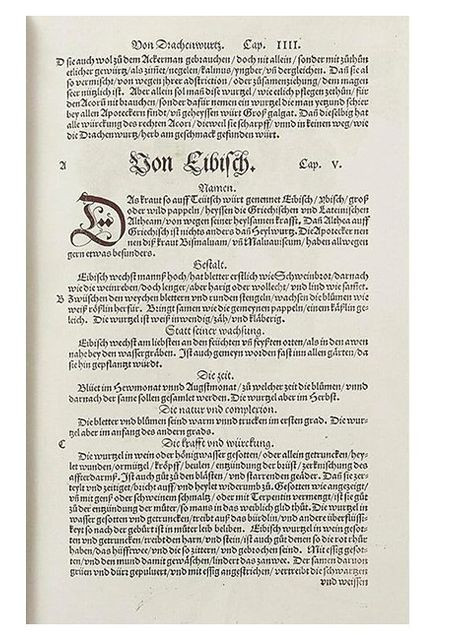 Von Drachenwurtz. Cap. IIII.
D sie auch wol zů dem Ackerman gebrauchen / doch nit allein / sonder mit zůthůn
etlicher gewürtz / als zimet / negelen / kalmus / yngber / vñ dergleichen. Dañ sie al
so vermischt / von wegen jhrer adstriction / oder zůsamenziehung / dem magen
seer nützlich ist. Aber allein sol mañ dise wurtzel / wie etlich pflegen zethůn / für
den Acorů nit brauchen / sonder dafür nemen ein wurtzel die man yetzund schier
bey allen Apoteckern findt / vñ geheyssen würt Groß galgat. Dañ dieselbig hat
alle würckung des rechten Acori / dieweil sie scharpff / vnnd in keinen weg / wie
die Drachenwurtz / herb am geschmack gefunden würt.
A Von Eibisch. Cap. V.
Namen.
DAs kraut so auff Teütsch würt genennet Eibisch / ybisch / groß
oder wild pappeln / heyssen die Griechischen vnd Lateinischen
Altheam / von wegen seiner heylsamen krafft. Dañ Althea auff
Griechisch ist nichts anders dañ Heylwurtz. Die Apotecker nen
nen diß kraut Bismaluam / vñ Maluauiscum / haben allwegen
gern etwas besunders.
Gestalt.
Eibisch wechst manns hoch / hat bletter erstlich wie Schweinbrot / darnach
wie die weinreben / doch lenger / aber harig oder wollecht / vnd lind wie sammet.
B Zwüschen den weychen blettern vnd runden stengeln / wachsen die blůmen wie
weiß rößlin herfür. Bringt samen wie die gemeynen pappeln / einem käßlin ge-
leich. Die wurtzel ist weiß inwendig / zäh / vnd kläberig.
Statt seiner wachsung.
Eibisch wechst am liebsten an den feüchten vñ feyßten orten / als in den awen
nahe bey den wassergräben. Ist auch gemeyn worden fast inn allen gärten / da
sie hin gepflantzt würdt.
Die zeit.
Blüet im Hewmonat vnnd Augstmonat / zů welcher zeit die blůmen / vnnd
darnach der same sollen gesamlet werden. Die wurtzel aber im Herbst.
Die natur vnd complexion.
Die bletter vnd blůmen seind warm vnnd trucken im ersten grad. Die wur-
tzel aber im anfang des andern grads.
C Die krafft vnd würckung.
Die wurtzel in wein oder hönigwasser gesotten / oder allein getruncken / hey-
let wunden / ormützel / kröpff / beulen / entzündung der brüst / zerknischung des
affterdarmß. Ist auch gůt zů den blästen / vnd starrenden geäder. Dañ sie zer-
teylt vnd zeitiget / bricht auff / vnd heylet widerumb zů. Gesotten wie angezeigt /
vñ mit genß oder schweinem schmaltz / oder mit Terpentin vermengt / ist sie gůt
zů der entzündung der můter / so mans in das weiblich glid thůt. Die wurtzel in
wasser gesotten vnd getruncken / treibt auß das bürdlin / vnd andere überflüssi-
keyt so nach der geburt ist in můter leib beliben. Eibisch wurtzel in wein gesot-
ten vnd getruncken / treibt den harn / vnd stein / ist auch gůt denen so die rot růr
haben / das hüfftwee / vnd die so zittern / vnd gebrochen seind. Mit essig gesot-
ten / vnd den mund damit gewäschen / lindert das zanwee. Der samen daruon
grün vnd dürr gepuluert / vnd mit essig angestrichen / vertreibt die schwartzen
vnd weissen